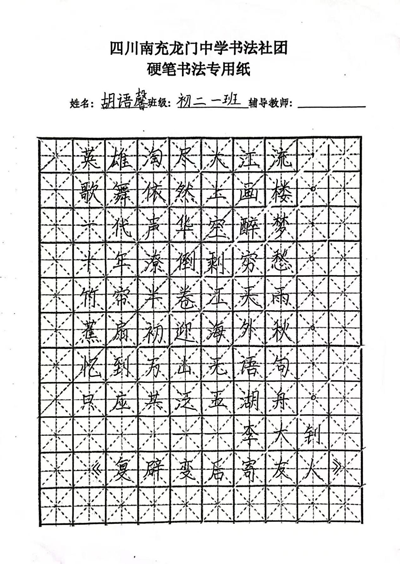 四川南充龙门中学书法社团
硬笔书法专用纸
姓名：胡语馨 班级：初二一班 辅导教师：
英雄淘尽大江流，
歌舞依然上画楼。
一代声华空醉梦，
十年潦倒剩穷愁。
竹帘半卷江天雨，
蕉扇初迎海外秋。
忆到万出无语句，
只应共泛五湖舟。
李大钊
《复辟变后寄友人》